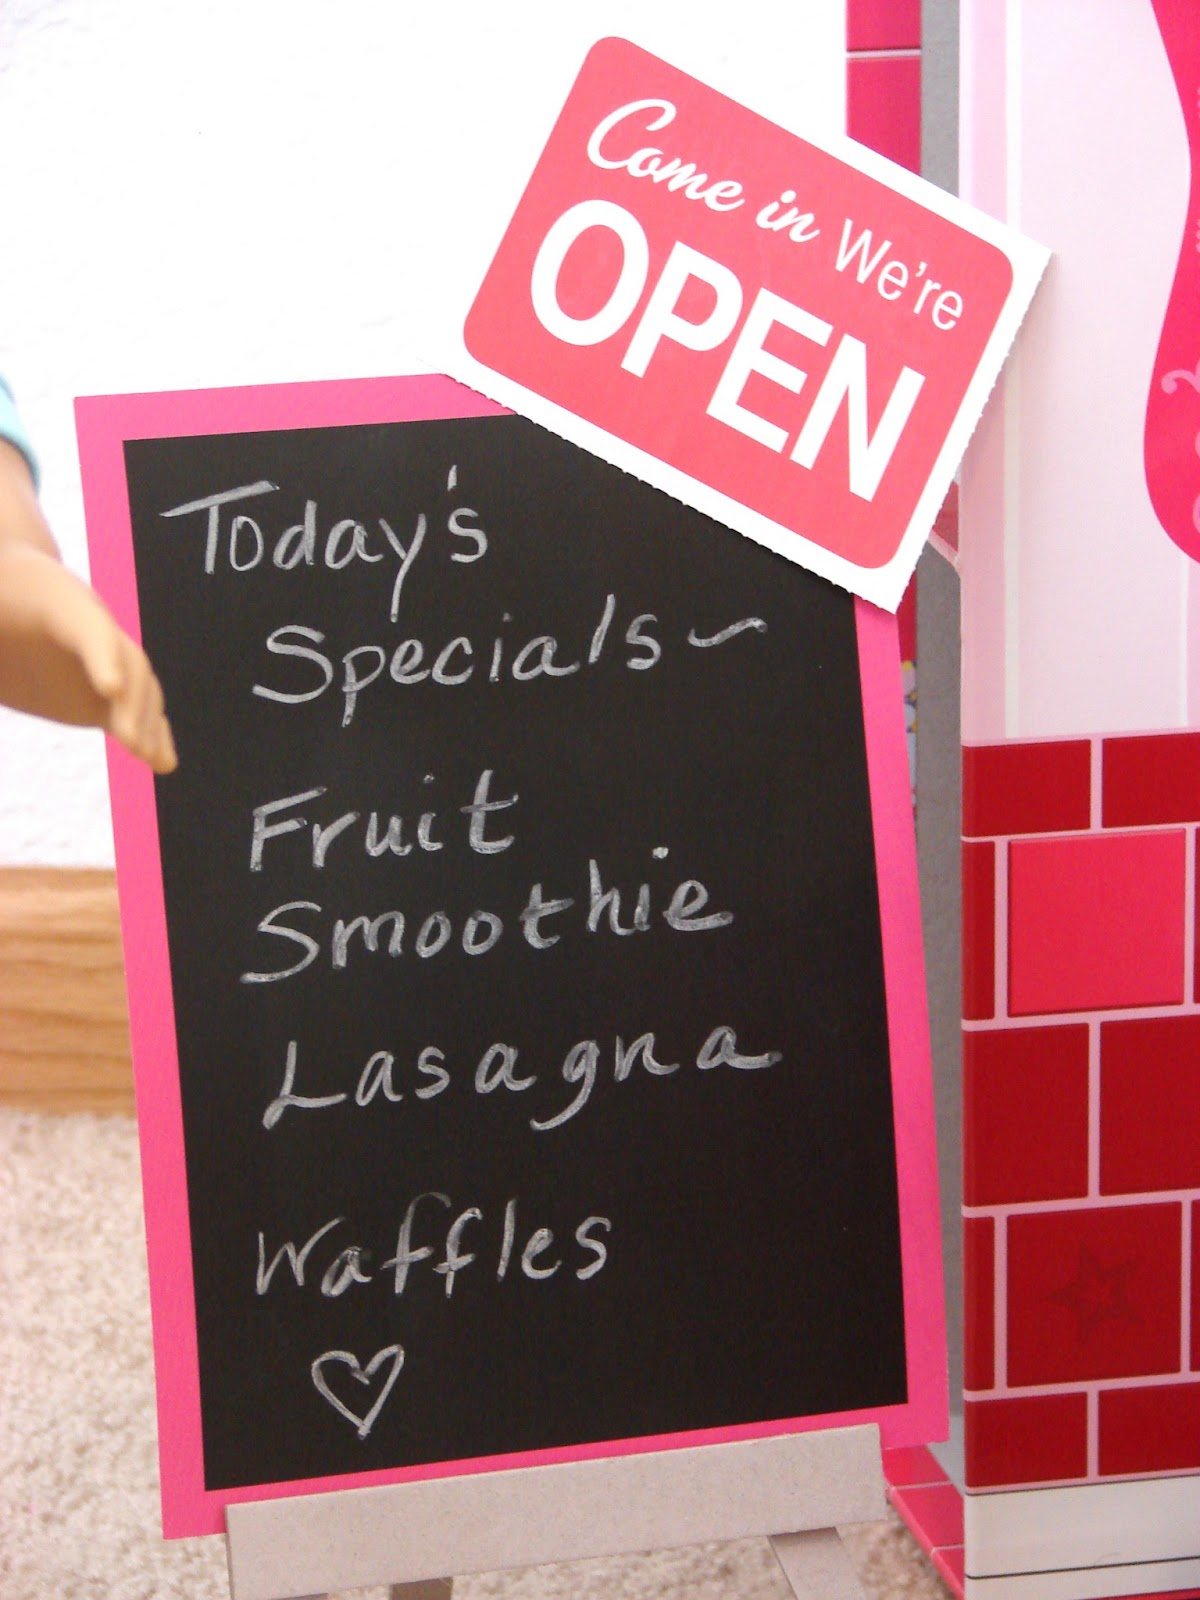 Come in We're
OPEN
Today's
Specials~
Fruit
Smoothie
Lasagna
Waffles